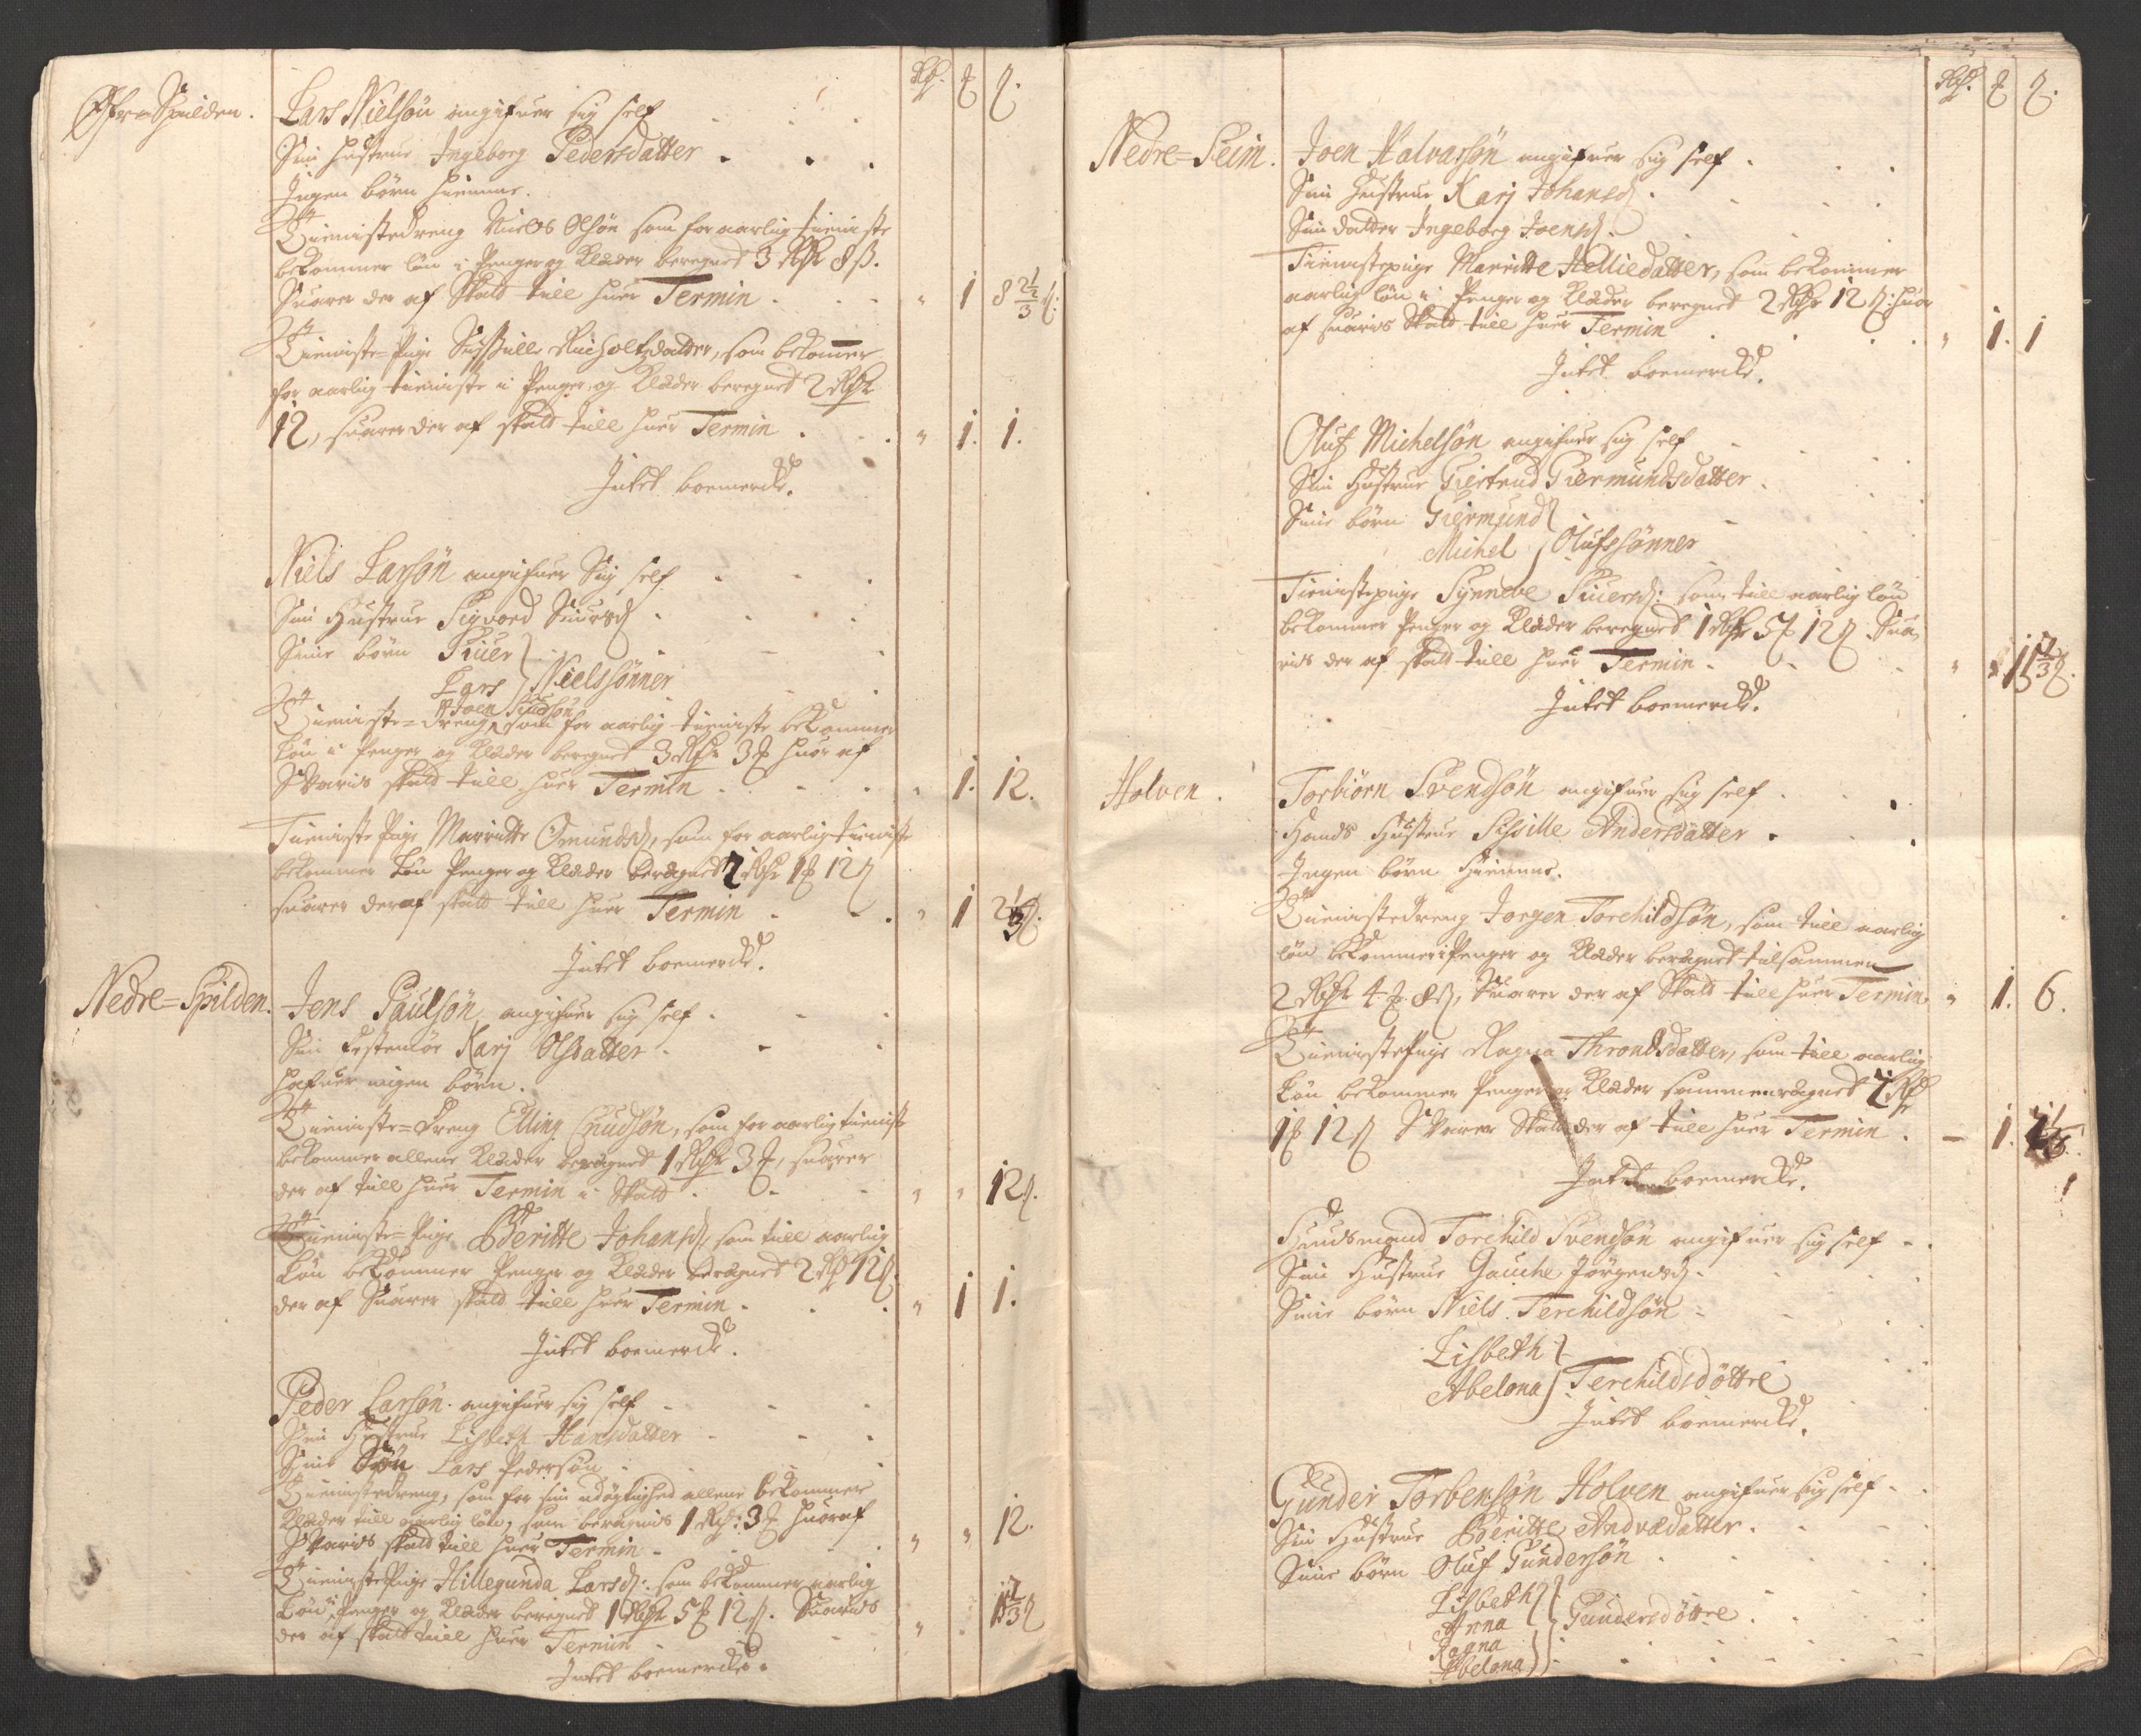 Rdr. ₰ ß.
Øfre-Spilden. Lars Nielsøn angifuer sig self
Sin hustrue Ingeborg Pedersdatter
Ingen børn hiemme.
Tienistedreng Niels Olsøn som for aarlig tieniste
bekommer løn i Penger og Klæder beregnet 3 Rdr 8 ß.
Suarer der af Skatt till huer Termin " 1 8 2/3 ß.
Tieniste-Pige datter, som bekommer
for aarlig tieniste i Penger og Klæder beregnet 2 Rdr
12, suarer der af skatt till huer Termin " 1. 1.
Intet bemercke.
Niels Larsøn angifuer Sig self
Sin Hustrue Sigvord Siursd
Sine børn Siuer
Lars Nielssønner
Joen
Tieniste-Dreng som for aarlig tieniste bekommer
Løn i Penger og Klæder beregnet 3 Rdr 3 ₰ huor af
Svaris skatt till huer Termin " 1. 12.
Tieniste Pige Marritte Omundsd, som for aarlig tieniste
bekommer Løn Penger og Klæder beregnet 2 Rdr 1 ₰ 12 ß
suarer deraf skatt till huer Termin " 1 2 1/3 ß.
Intet bemercke.
Nedre-Spilden. Jens Paulsøn angifuer sig self
Sin Festemøe Karj Olsdatter
hafuer ingen børn.
Tieniste-Dreng Elling Cnudsøn, som for aarlig tieniste
bekommer allene Klæder beregnet 1 Rdr 3 ₰, suarer
der af till huer Termin i Skatt " " 12 ß.
Tieniste-Pige Beritte Johansd, som till aarlig
Løn bekommer Penger og Klæder beregnet 2 Rdr 12 ß.
der af Suarer skatt till huer Termin " 1 1.
Intet bemercke.
Peder Larsøn angifuer sig self
Sin Hustrue Lisbeth Hansdatter
Sine Søn Lars Pedersøn
Tienistedreng, som for sin udøgtighed allene bekommer
Klæder till aarlig løn, som beregnis 1 Rdr: 3 ₰ huoraf
Svaris skatt till huer Termin " " 12.
TienistePige Hillegunda Larsd: som bekommer aarlig
Løn i Penger og Klæder beregnet 1 Rdr 5 ₰ 12 ß. Suaris
der af skatt till huer Termin " 15 1/3 ß
Intet bemercke.
Rdr. ₰ ß.
Nedre-Seim. Joen Halvarsøn angifuer sig self
Sin Hustrue Karj Johansd
Sin datter Ingeborg Joensd.
Tienistepige Marritte Helliedatter, som bekommer
aarlig løn i Penger og Klæder beregnet 2 Rdr 12 ß: huor
af suaris Skatt till huer Termin " 1. 1
Intet bemercke.
Oluf Michelsøn angifuer sig self
Sin Hustrue Giertrud Giermundsdatter
Sine børn Giermund
Michel Olufssønner
Tienistepige Synneve Siuersd: som till aarlig løn
bekommer Penger og Klæder beregnet 1 Rdr 5 ₰ 12 ß Sua-
ris der af skatt till huer Termin " " 15 1/3 ß.
Intet bemercke.
Holven. Torbiørn Svendsøn angifuer sig self
Hands Hustrue Sissille Andersdatter
Ingen børn Hiemme.
Tienistedreng Jorgen Torchildsøn, som till aarlig
løn bekommer i Penger og Klæder beregnet tilsammen
2 Rdr 4 ₰ 8 ß, Suarer der af Skatt till huer Termin " 1. 6.
TienistePige Ragna Throndsdatter, som till aarlig
Løn bekommer Penger og Klæder sammenregnet 2 Rdr
1 ₰ 12 ß Svarer Skatt der af till huer Termin - 1. 2 1/3.
Intet bemercke.
Huusmand Torchild Svendsøn angifuer sig self
Sin Hustrue Gauche Jørgensd
Sine børn Niels Terchildsøn
Lisbeth
Abelona Terchildsdøttre
Intet bemercke.
Gunder Torbensøn Holven angifuer sig self
Sin Hustrue Beritte Andvædatter
Sine børn Oluf Gundersøn
Lisbeth
Anna Gundersdøttre
Ragna
Abelona